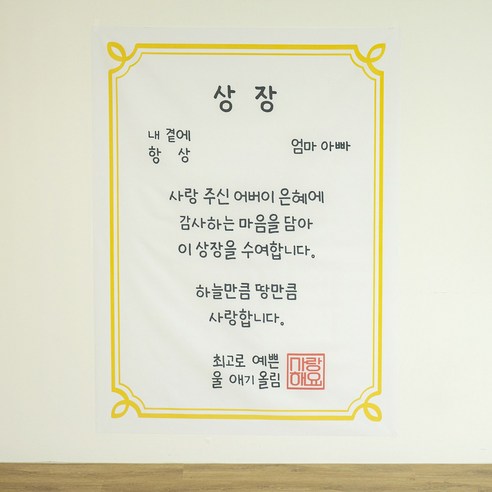 상 장
내 곁에
항 상
엄마 아빠
사랑 주신 어버이 은혜에
감사하는 마음을 담아
이 상장을 수여합니다.
하늘만큼 땅만큼
사랑합니다.
최고로 예쁜
울 애기 올림
사랑
해요